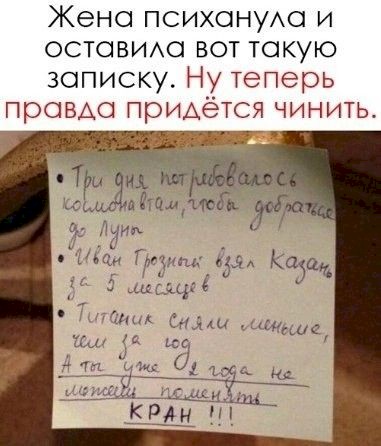 Жена психанула и
оставила вот такую
записку. Ну теперь
правда придётся чинить.
• Три дня потребовалось
космонавтам, чтобы добраться
до Луны
• Иван Грозный взял Казань
за 5 месяцев
• Титаник сняли меньше,
чем за год
А ты уже 2 года не
можешь поменять
КРАН !!!